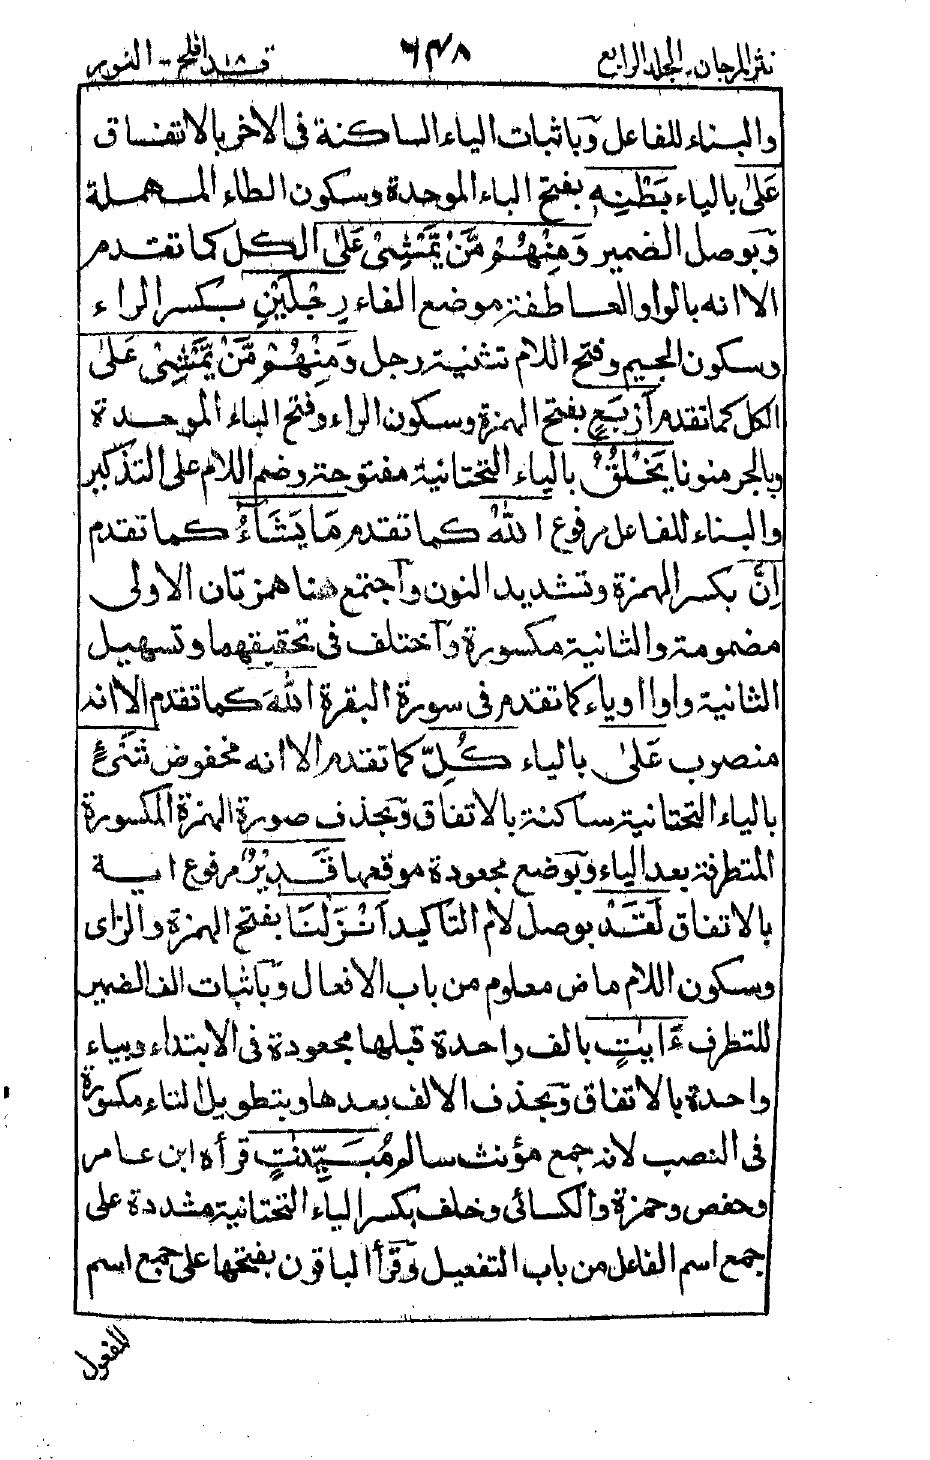 نثر المرجان - الجلد الرابع ٦٤٨ قد افلح ١٨ - النور
والبناء للفاعل وباثبات الياء الساكنة فى الاخر بالاتفاق
عَلىٰ بالياء بَطْنِهٖ بفتح الباء الموحدة وسكون الطاء المهملة
وبوصل الضمير وَمِنْهُمْ مَّنْ يَّمْشِىْ عَلىٰ الكل كما تقدم
الا انه بالواو العاطفة موضع الفاء رِجْلَيْنِ بكسر الراء
وسكون الجيم وفتح اللام تثنية رجل وَمِنْهُمْ مَّنْ يَّمْشِىْ عَلىٰ
الكل كما تقدم اَرْبَعٍ بفتح الهمزة وسكون الراء وفتح الباء الموحدة
وبالجر منونا يَخْلُقُ بالياء التحتانية مفتوحة وضم اللام على التذكير
والبناء للفاعل مرفوع اللّٰهُ كما تقدم مَا يَشَاءُ كما تقدم
اِنَّ بكسر الهمزة وتشديد النون واجتمع هنا همزتان الاولى
مضمومة والثانية مكسورة واختلف فى تحقيقهما وتسهيل
الثانية واوا او ياء كما تقدم فى سورة البقرة اللّٰهَ كما تقدم الا انه
منصوب عَلىٰ بالياء كُلِّ كما تقدم الا انه مخفوض شَىْءٍ
بالياء التحتانية ساكنة بالاتفاق وبحذف صورة الهمزة المكسورة
المتطرفة بعد الياء وبوضع مجعودة موقعها قَدِيْرٌ مرفوع اية
بالاتفاق لَقَدْ بوصل لام التاكيد اَنْزَلْنَا بفتح الهمزة والزاى
وسكون اللام ماض معلوم من باب الافعال وباثبات الف الضمير
للتطرف ءَايٰتٍ بالف واحدة قبلها مجعودة فى الابتداء وبياء
واحدة بالاتفاق وبحذف الالف بعدها وبتطويل التاء مكسورة
فى النصب لانه جمع مؤنث سالم مُبَيِّنٰتٍ قرأه ابن عامر
وحفص وحمزة والكسائى وخلف بكسر الياء التحتانية مشددة على
جمع اسم الفاعل من باب التفعيل وقرأ الباقون بفتحها على جمع اسم
المفعول